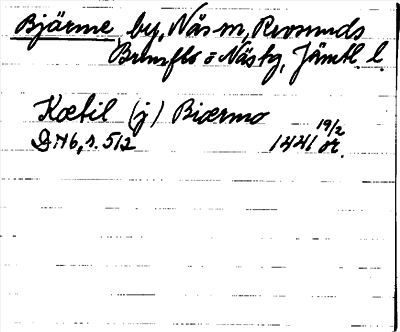 Bjärme, by, Näs sn, Revsunds
Brunflo o Näs tg, Jämtl. l.
Kætil (j) Biærmo
DN 6, s. 512 1441 19/2 or.